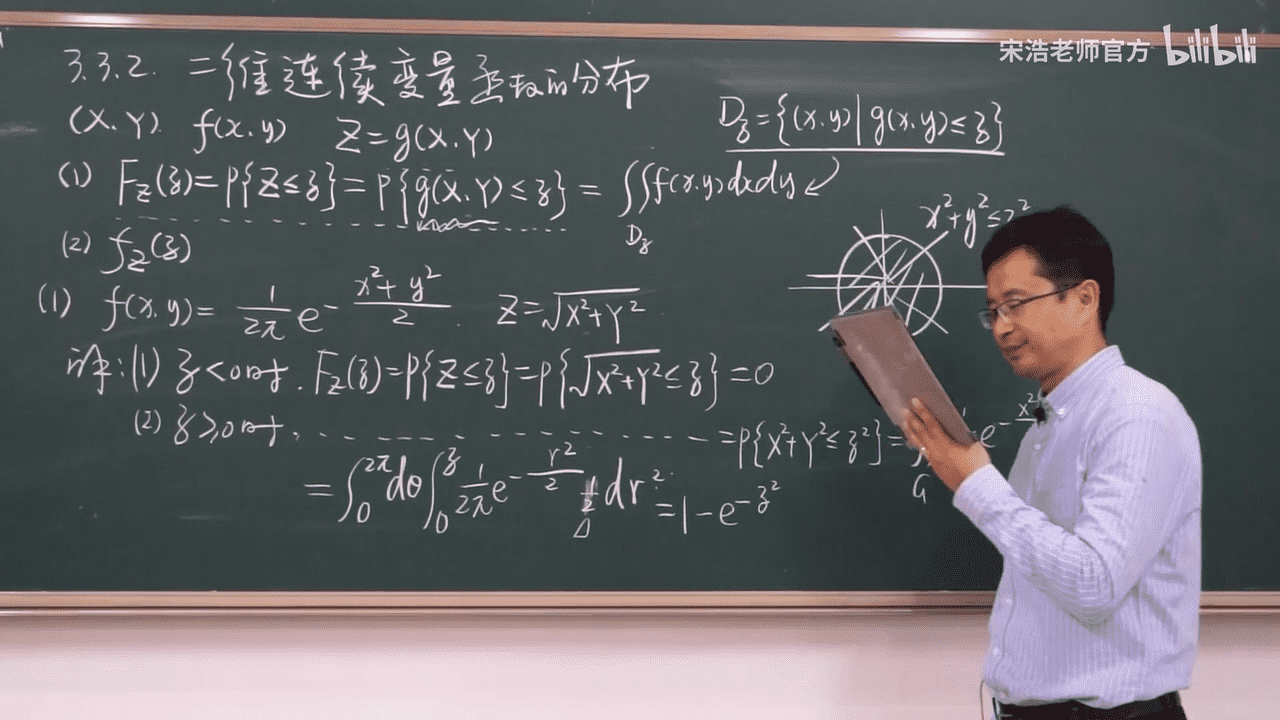 宋浩老师官方 bilibili
3.3.2. 二维连续变量函数的分布
(X.Y) f(x.y) Z=g(X.Y)
D_z={(x.y)|g(x.y)≤z}
(1) F_Z(z)=P{Z≤z}=P{g(X.Y)≤z}=∬_{D_z} f(x.y)dxdy
(2) f_Z(z)
x²+y²≤z²
(1) f(x.y)= 1/2π e^{-(x²+y²)/2}. Z=√(X²+Y²)
解:(1) z<0时. F_Z(z)=P{Z≤z}=P{√(X²+Y²)≤z}=0
(2) z≥0时. - - - - - - =P{X²+Y²≤z²}=
G
=∫_0^{2π}dθ∫_0^z 1/2π e^{-r²/2} 1/2 dr² =1-e^{-z²}